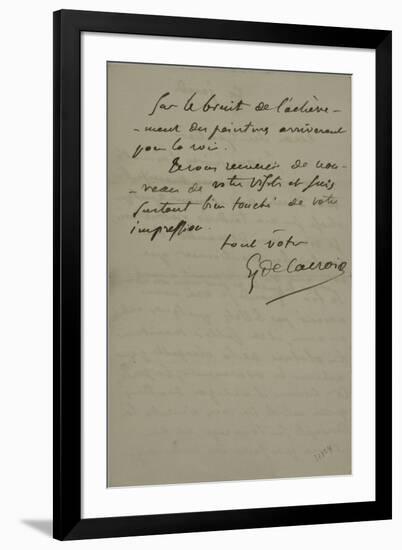 Sur le bruit de l'achève-
-ment des peintures arriveront
pour la voir.
Je vous remercie de nou-
-veau de votre visite et suis
surtout bien touché de votre
impression.
tout à vous
EugDelacroix